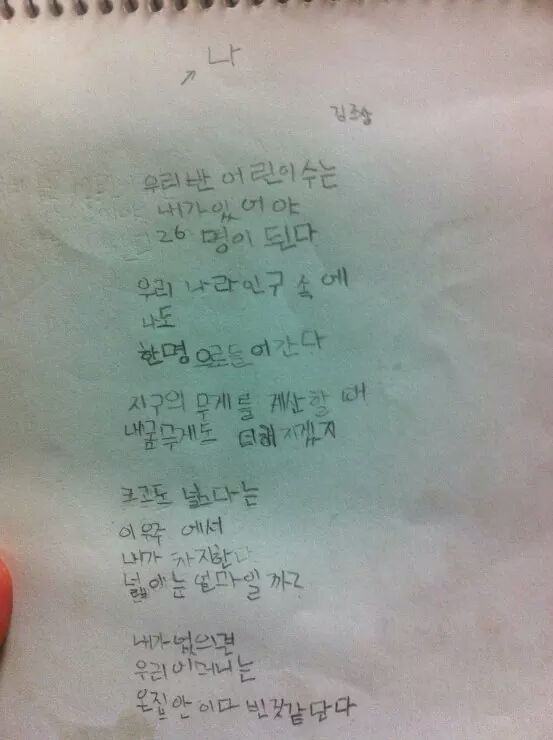 나
김종상
우리반 어린이 수는
내가 있어야
26 명이 된다
우리 나라 인구 속에
나도
한명으로 들어간다
지구의 무게를 계산할 때
내몸무게도 더해지겠지
크고도 넓다는
이 우주에서
내가 차지한다
넓이는 얼마일까?
내가 없의면
우리 어머니는
온집안이 다 빈것같단다